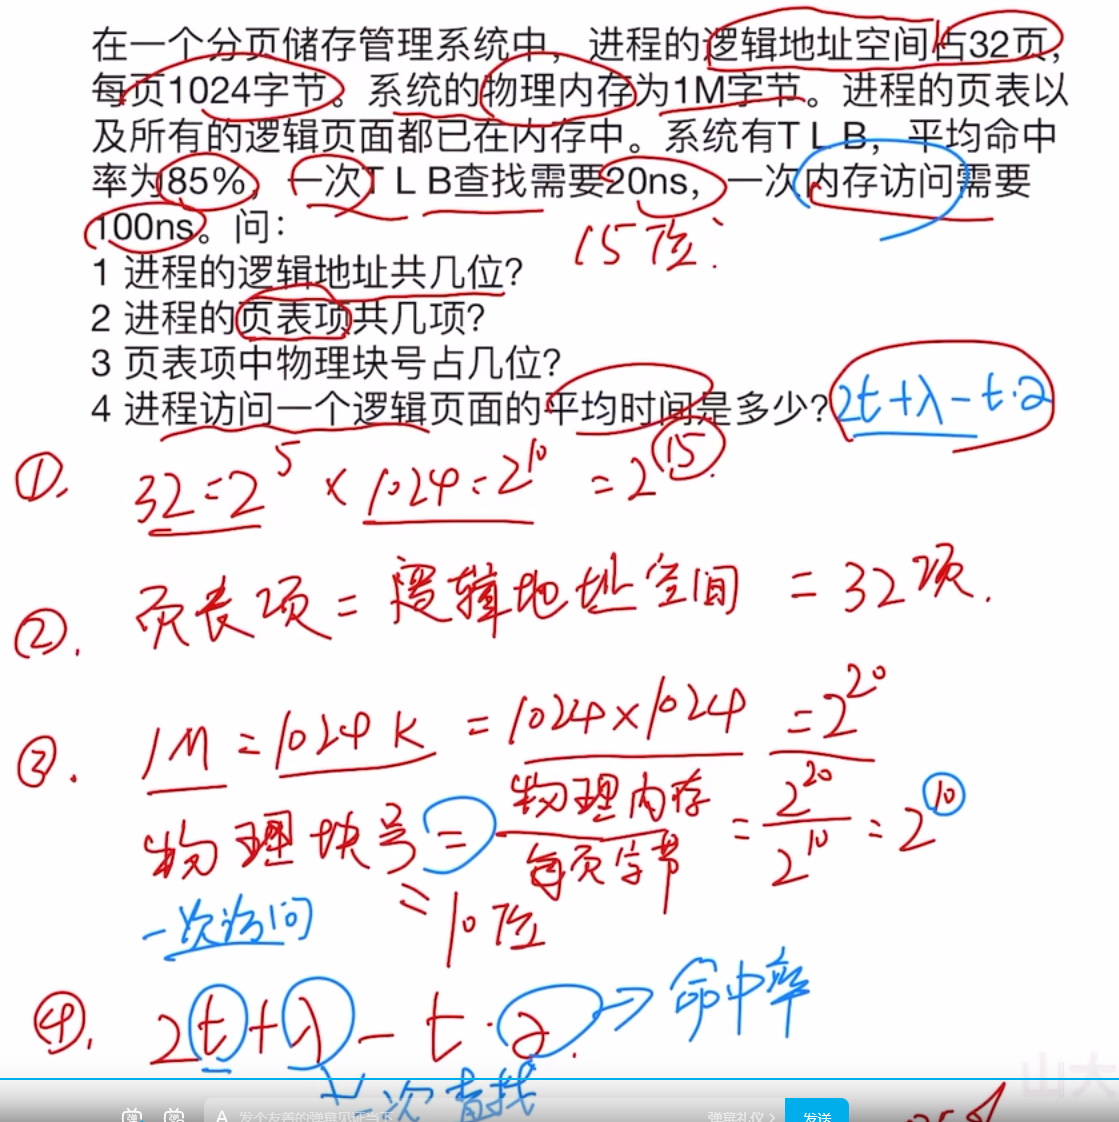 在一个分页储存管理系统中，进程的逻辑地址空间占32页，
每页1024字节。系统的物理内存为1M字节。进程的页表以
及所有的逻辑页面都已在内存中。系统有TLB，平均命中
率为85%，一次TLB查找需要20ns，一次内存访问需要
100ns。问：
15位.
1 进程的逻辑地址共几位？
2 进程的页表项共几项？
3 页表项中物理块号占几位？
4 进程访问一个逻辑页面的平均时间是多少？ 2t+λ-t·2
①. 32=2^5 × 1024=2^10 =2^15.
②. 页表项=逻辑地址空间 =32项.
③. 1M=1024K =1024×1024 =2^20
物理块号= 物理内存/每页字节 =2^20/2^10 =2^10
=10位
一次访问
④. 2t+λ-t·2. →命中率
一次查找
山大
发个友善的弹幕见证当下 弹幕礼仪> 发送